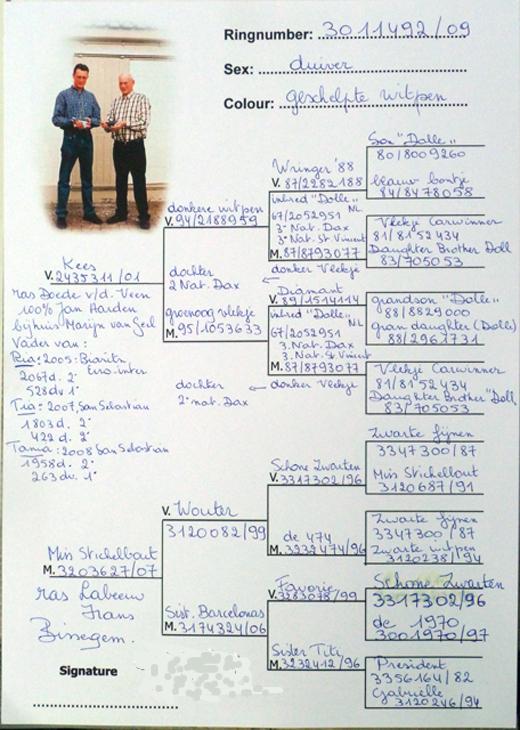 Ringnumber: 3011492/09
Sex: duiver
Colour: geschelpte witpen
Son "Dolle"
80/8009260
Wringer '88
V. 87/2282188
blauw bontje
84/8478058
donkere witpen
V. 94/2188959
inbred "Dolle"
67/2052951 NL
3e Nat. Dax
3e Nat. St Vincent
M. 87/8793077
Vlekje Carwinner
81/8152434
Daughter Brother Doll
83/705053
Kees
V. 2435311/01
dochter
2 Nat. Dax
← donker Vlekje
ras Doede v/d. Veen
100% Jan Harden
bijhuis Marijn van Geel
Vader van:
Ria: 2005: Biaritz
2067d. 2e Euro. inter
528dv 1e
Tia: 2007, San Sebastian
1803d. 2e
422 d. 2e
Tamia: 2008 San Sebastian
1958d. 2e
263dv. 1e
Diamant
V. 89/1514114
grandson "Dolle"
88/8829000
gran daughter (Dolle)
88/2961731
groenoog vlekje
M. 95/1053633
inbred "Dolle"
67/2052951 NL
3. Nat. Dax
3. Nat. St Vincent
M. 87/8793077
Vlekje Carwinner
81/8152434
Daughter Brother "Doll
83/705053
dochter
2e nat. Dax
← donker Vlekje
Zwarte Lijnen
3347300/87
Schone Zwarten
V. 3317302/96
Miss Stichelbaut
3120687/91
V. Wouter
3120082/99
de 474
M. 3232474/96
Zwarte Lijnen
3347300/87
Zwarte witpen
3120238/94
Miss Stichelbaut
M. 3203627/07
ras Labeeuw
Frans
Bissegem.
Favorie
V. 3283078/99
Schone Zwarten
3317302/96
de 1970
3001970/97
Sist. Barcelonas
M. 3174324/06
Sister Titi
M. 3232412/96
President
3356164/82
Gabrielle
3120246/94
Signature